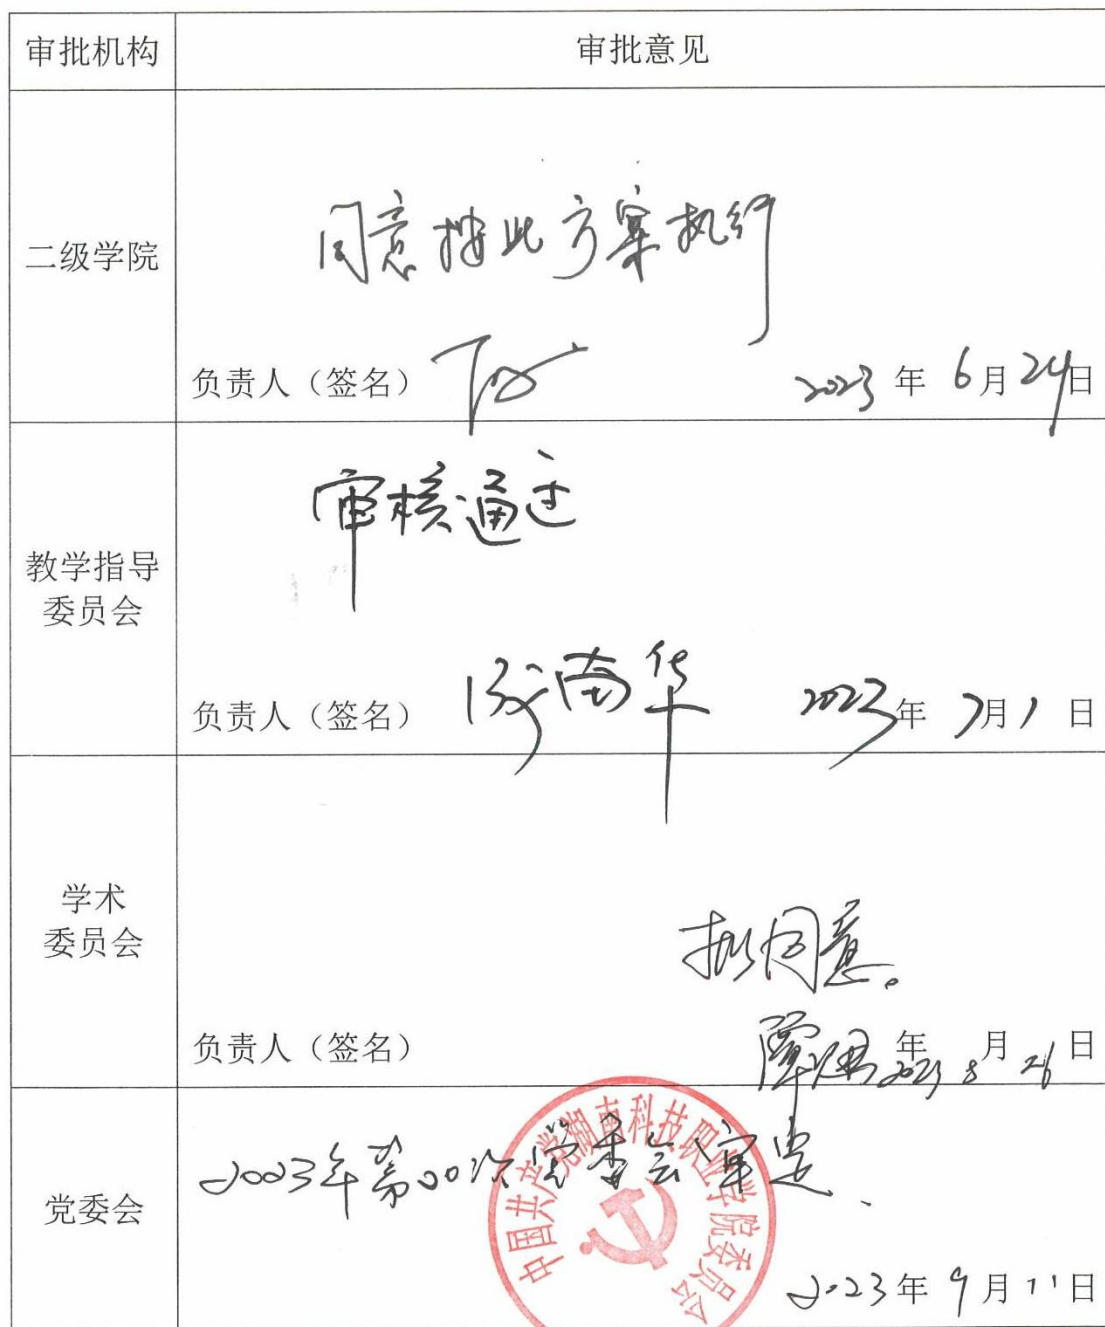 审批机构 审批意见
二级学院
同意按此方案执行
负责人（签名） 2023 年 6月24日
教学指导
委员会
审核通过
负责人（签名） 南华 2023年 7月1 日
学术
委员会
拟同意。
负责人（签名） 年 月 日
2023 8 26
党委会
2003年第20次党委会审定、
中国共产党湖南科技职业学院委员会
2023年 9月11日